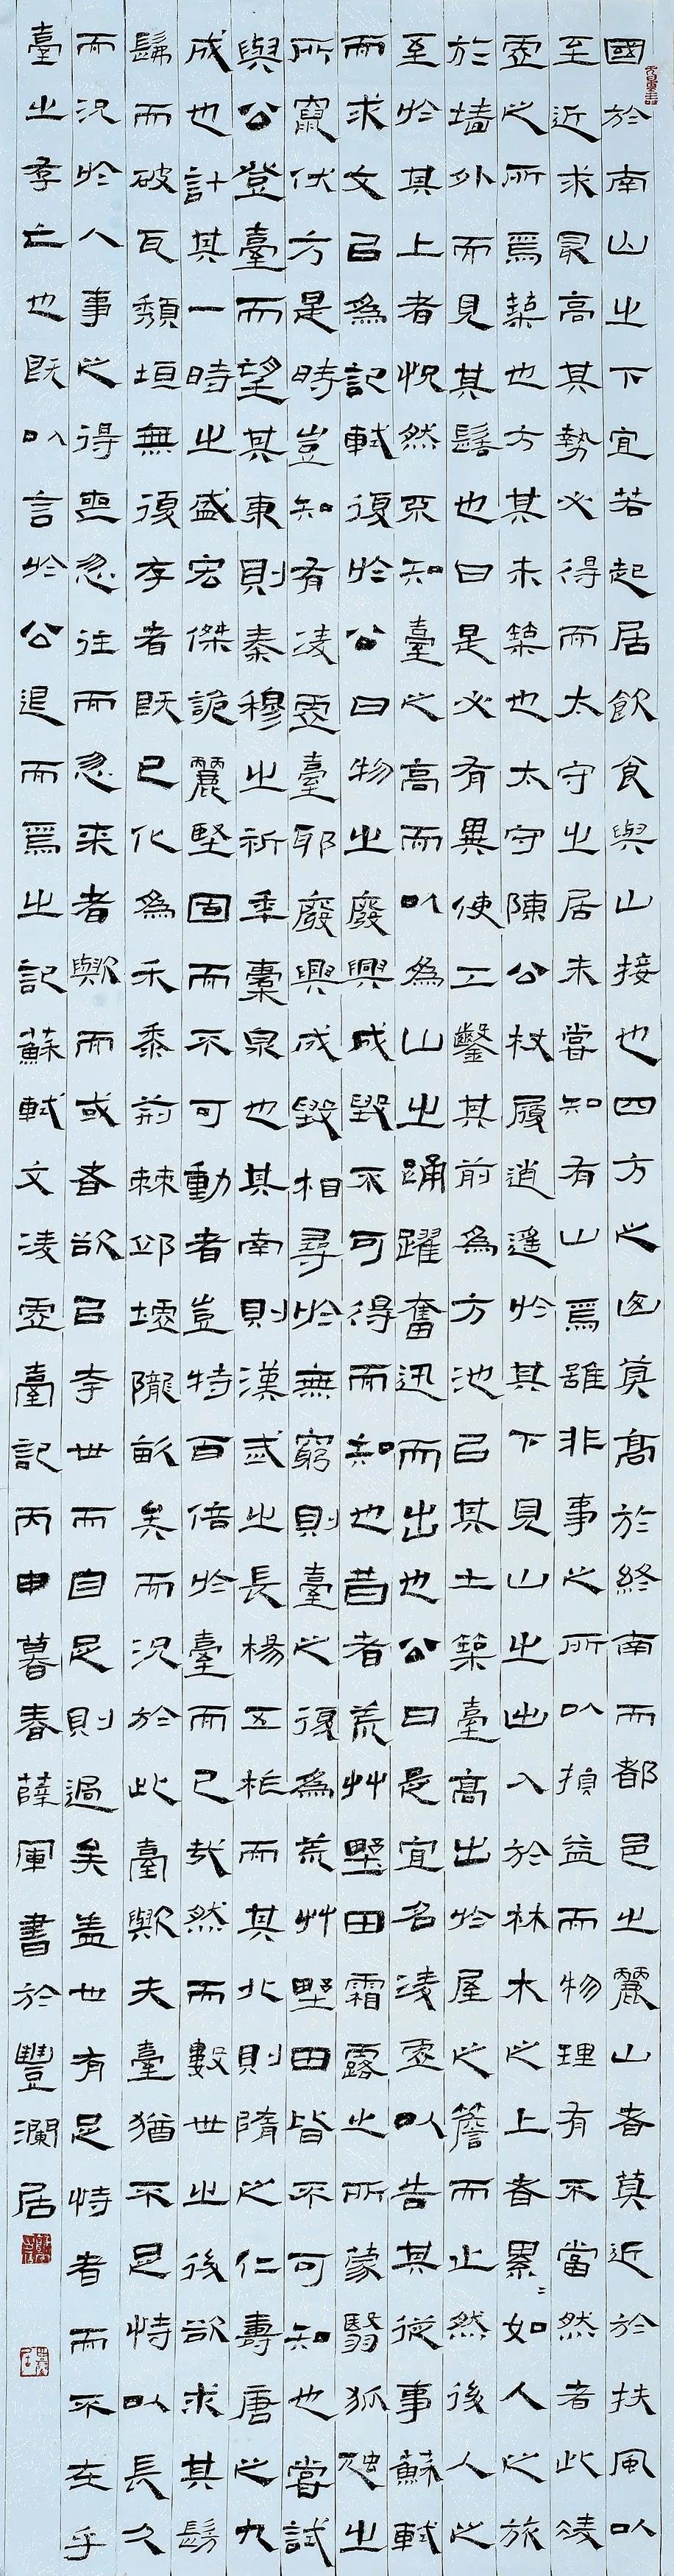 國於南山之下宜若起居飲食與山接也四方之山莫高於終南而都邑之麗山者莫近於扶風以
至近求最高其勢必得而太守之居未嘗知有山焉雖非事之所以損益而物理有不當然者此凌
虛之所爲築也方其未築也太守陳公杖履逍遙於其下見山之出入於林木之上者累〻如人之旅
於墻外而見其髻也曰是必有異使工鑿其前為方池以其土築臺高出於屋之簷而止然後人之
至於其上者怳然不知臺之高而以為山之踊躍奮迅而出也公曰是宜名凌虛以告其從事蘇軾
而求文以為記軾復於公曰物之廢興成毀不可得而知也昔者荒艸野田霜露之所蒙翳狐虺之
所竄伏方是時豈知有凌虛臺耶廢興成毀相尋於無窮則臺之復為荒艸野田皆不可知也嘗試
與公登臺而望其東則秦穆之祈年橐泉也其南則漢武之長楊五柞而其北則隋之仁壽唐之九
成也計其一時之盛宏傑詭麗堅固而不可動者豈特百倍於臺而已哉然而數世之後欲求其髣
髴而破瓦頹垣無復存者既已化為禾黍荊棘邱墟隴畝矣而況於此臺歟夫臺猶不足恃以長久
而況於人事之得喪忽往而忽來者歟而或者欲以夸世而自足則過矣蓋世有足恃者而不在乎
臺之存亡也既以言於公退而爲之記蘇軾文凌虛臺記丙申暮春薛軍書於豐瀾居